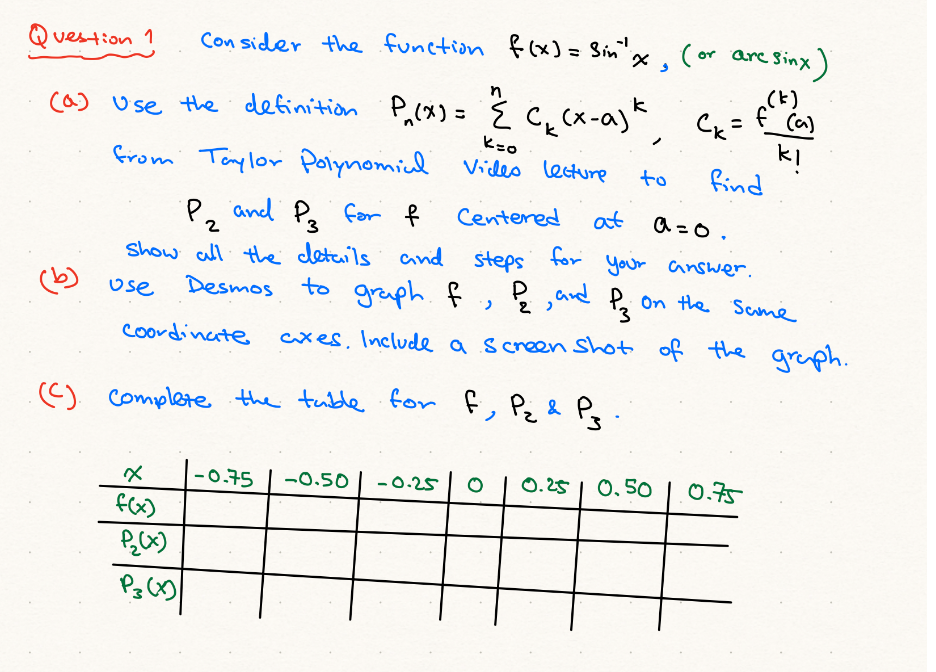 Question 1 Consider the function f(x) = Sin⁻¹x, (or arcsinx)
(a) Use the definition Pₙ(x) = Σ_{k=0}^{n} Cₖ (x-a)ᵏ, Cₖ = f⁽ᵏ⁾(a)/k!
from Taylor Polynomial Video lecture to find
P₂ and P₃ for f Centered at a=0.
show all the details and steps for your answer.
(b) use Desmos to graph f, P₂, and P₃ on the same
coordinate axes. Include a screen shot of the graph.
(C) complete the table for f, P₂ & P₃.
x -0.75 -0.50 -0.25 0 0.25 0.50 0.75
f(x)
P₂(x)
P₃(x)